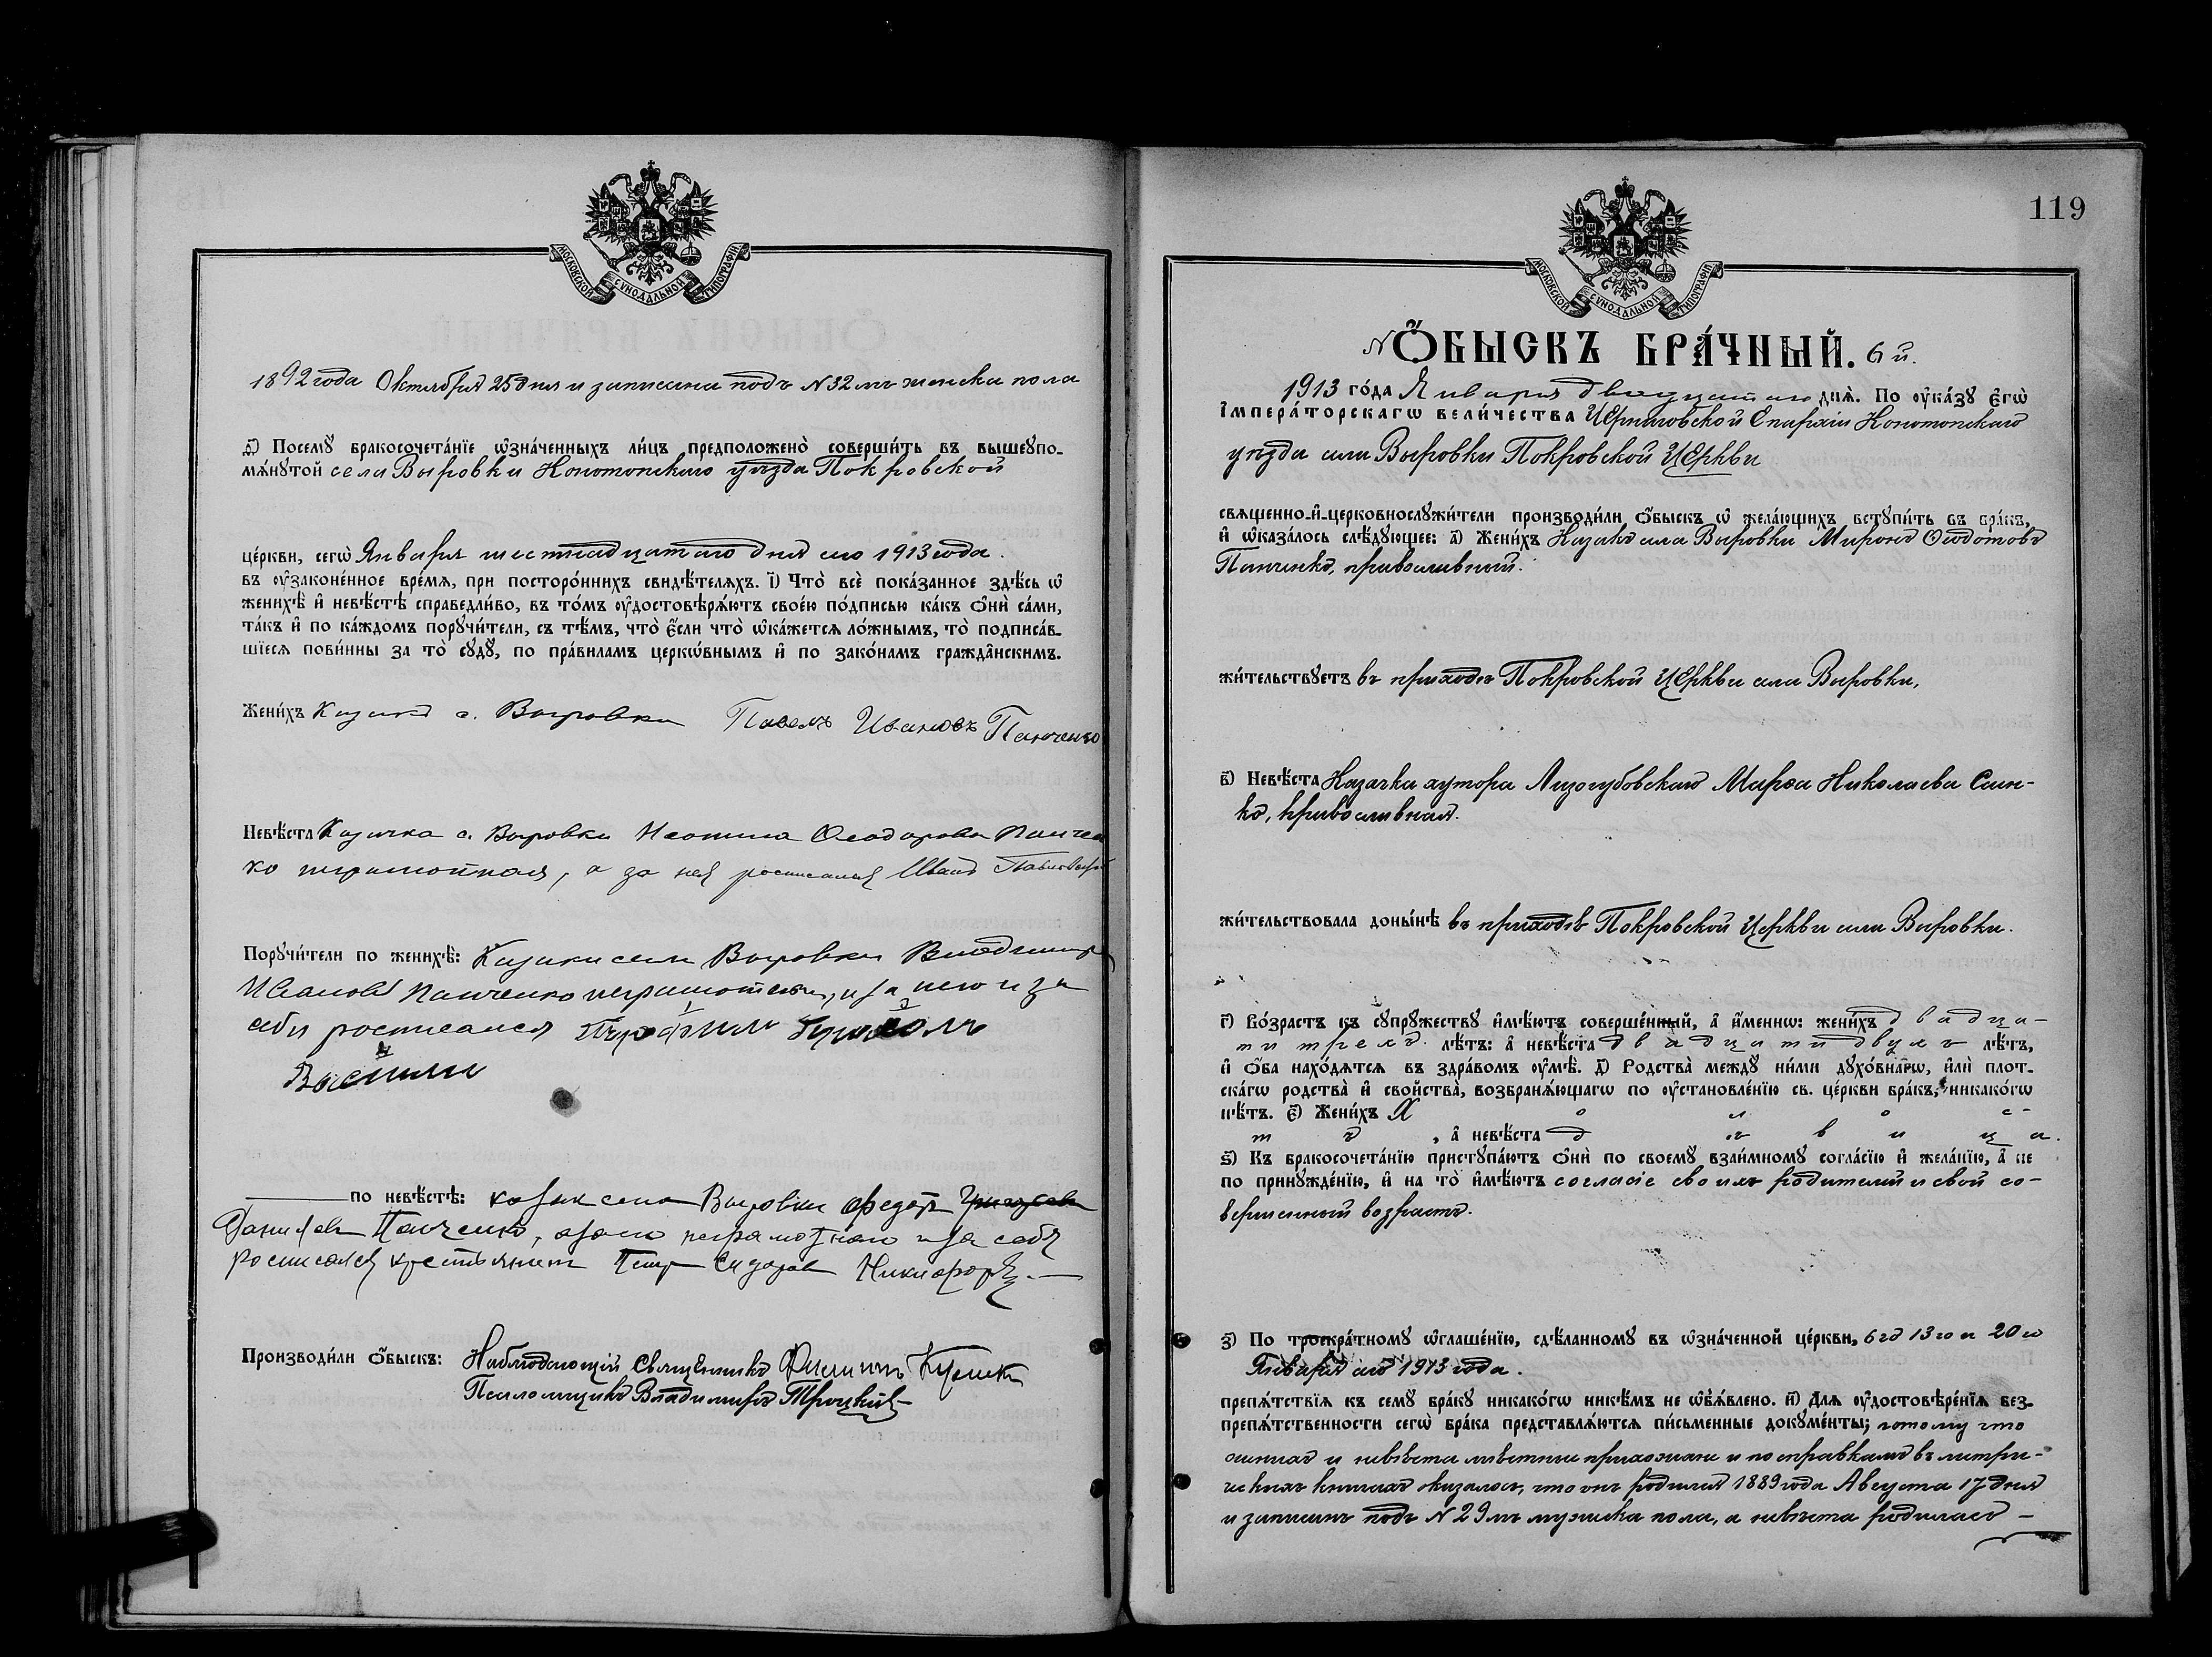 МОСКОВСКОЙ СѴНОДАЛЬНОЙ ТИПОГРАФІИ
1892 года Октября 25 дня и записана подъ N 32 мъ женска пола
д҃) Посемꙋ бракосочета́нїе ѡзна́ченныхъ ли́цъ предположено̀ соверши́ть въ вышеꙋпо-
мѧ́нꙋтой села Выровки Конотопскаго уѣзда Покровской
це́ркви, сегѡ̀ Января шестнадцатаго дня сего 1913 года.
въ ᲂу҆законе́нное вре́мѧ, при посторо́ннихъ свидѣ́телѧхъ. і҃) Что̀ всѐ пока́занное здѣ́сь ѡ҆
женихѣ̀ и҆ невѣ́стѣ справедли́во, въ то́мъ ᲂу҆достовѣрѧ́ютъ свое́ю по́дписью ка́къ ѻ҆нѝ са́ми,
та́къ и҆ по ка́ждомъ порꙋчи́тели, съ тѣ́мъ, что̀ є҆́сли что̀ ѡ҆ка́жетсѧ ло́жнымъ, то̀ подписа́в-
шїесѧ пови́нны за то̀ сꙋдꙋ̀, по пра́виламъ церкѡ́внымъ и҆ по зако́намъ гражда̑нскимъ.
Жени́хъ Казакъ с. Выровки Павелъ Ивановъ Панченко
Невѣ́ста Казачка с. Выровки Ѳеодорова Панчен
ко неграмотная, а за нея росписался Иванъ
Порꙋчи́тели по женихѣ̀: Казаки села Выровки Владимир
Ивановъ Панченко неграмотный, и за него и за
себя росписался
Василий
по невѣ́стѣ: казак села Выровки Федор
Панченко, а за него неграмотнаго и за себя
росписался крестьянин Петр Сидоров
Производи́ли ѻ҆́быскъ: Наблюдающій Священникъ Филиппъ
Псаломщикъ Владимиръ Троцкій
119
МОСКОВСКОЙ СѴНОДАЛЬНОЙ ТИПОГРАФІИ
N ѺБЫСКЪ БРА́ЧНЫЙ. 6 й.
1913 го́да Января двадцатаго днѧ̀. По ᲂу҆ка́зꙋ є҆гѡ̀
і҆мпера́торскагѡ вели́чества Черниговской Епархіи Конотопскаго
уѣзда села Выровки Покровской Церкви
свѧщенно-и҆-церковнослꙋжи́тели производи́ли ѻ҆́быскъ ѡ҆ жела́ющихъ встꙋпи́ть въ бра́къ,
и҆ ѡ҆каза́лось слѣ́дꙋющее: а҃) Жени́хъ Казакъ села Выровки Миронъ Ѳедотовъ
Панченко, православный.
жи́тельствꙋетъ въ приходѣ Покровской Церкви села Выровки,
в҃) Невѣ́ста Казачка хутора Лизогубовскаго Марѳа Николаева Саен-
ко, православная.
жи́тельствовала доны́нѣ въ приходѣ Покровской Церкви села Выровки.
г҃) Во́зрастъ къ сꙋпрꙋ́жествꙋ и҆мѣ́ютъ соверше́нный, а҆ и҆́меннѡ: жени́хъ двадца-
ти трехъ лѣ́тъ: а҆ невѣ́ста двадцати двухъ лѣ́тъ,
и҆ ѻ҆́ба нахо́дѧтсѧ въ здра́вомъ ᲂу҆мѣ̀. д҃) Родства̀ междꙋ̀ ни́ми дꙋхо́внагѡ, и҆лѝ плот-
ска́гѡ родства̀ и҆ сво́йства̀, возбранѧ́ющагѡ по ᲂу҆становле́нїю св. це́ркви бра́къ, никако́гѡ
нѣ́тъ. є҃) Жени́хъ Холос-
тъ, а҆ невѣ́ста дѣвица.
ѕ҃) Къ бракосочета́нїю пристꙋпа́ютъ ѻ҆нѝ по своемꙋ̀ взаи́мномꙋ согла́сїю и҆ жела́нїю, а҆ не
по принꙋжде́нїю, и҆ на то̀ и҆мѣ́ютъ согласіе своихъ родителей и свой со-
вершенный возрастъ.
з҃) По троекра́тномꙋ ѡ҆глаше́нїю, сдѣ́ланномꙋ въ ѡ҆зна́ченной це́ркви, 6 го 13 го и 20 го
Января сего 1913 года.
препѧ́тствїѧ къ семꙋ̀ бра́кꙋ никако́гѡ никѣ́мъ не ѡ҆б̾ѧ́влено. и҃) Для ᲂу҆достовѣре́нїѧ без-
препѧ́тственности сегѡ̀ бра́ка представлѧ́ютсѧ пи́сьменные докꙋме́нты; потому что
женихъ и невѣста мѣстные прихожане и по справкамъ въ метри-
ческихъ книгахъ оказалось, что онъ родился 1889 года Августа 17 дня
и записанъ подъ N 29 мъ мужска пола, а невѣста родилась –